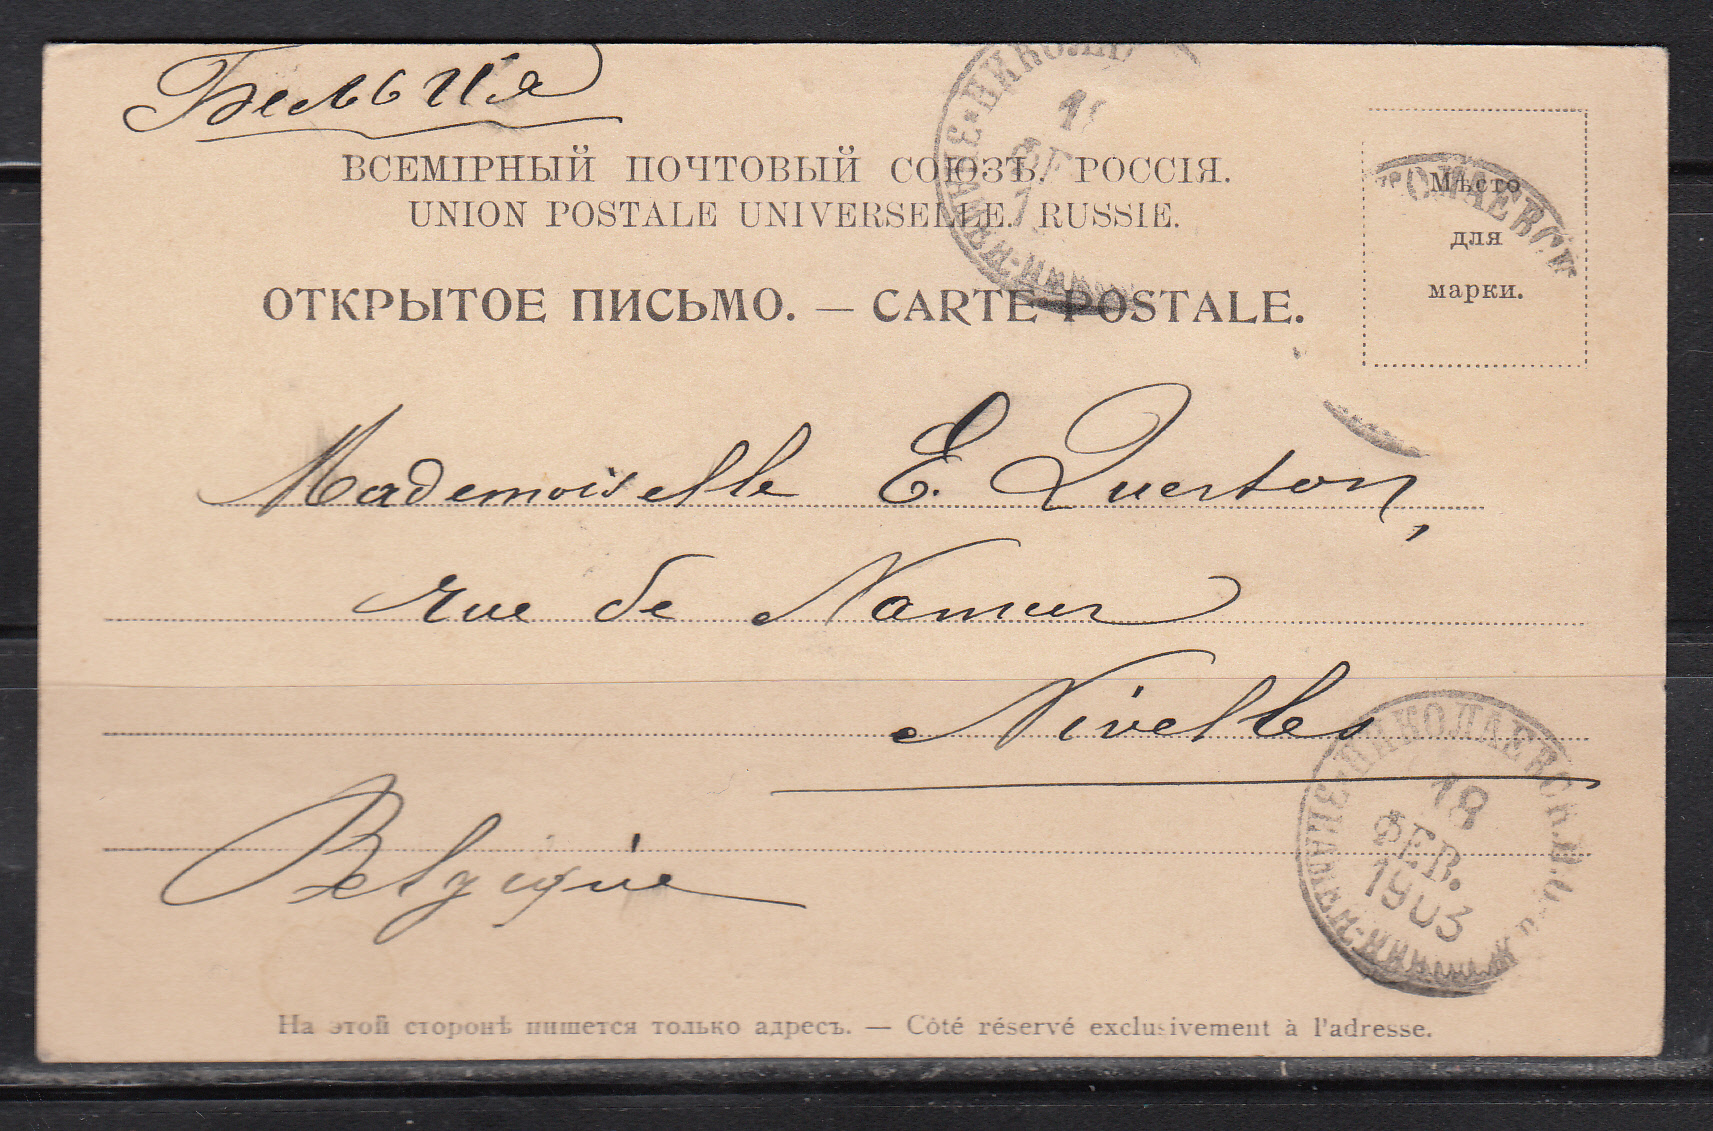 Бельгія
ВСЕМІРНЫЙ ПОЧТОВЫЙ СОЮЗЪ. РОССІЯ.
UNION POSTALE UNIVERSELLE. RUSSIE.
ОТКРЫТОЕ ПИСЬМО. — CARTE POSTALE.
Мѣсто
для
марки.
Mademoiselle E. Querton,
rue de Namur
Nivelles
Belgique
НИКОЛАЕВСК
18
ФЕВ.
1903
На этой сторонѣ пишется только адресъ. — Côté réservé exclusivement à l'adresse.